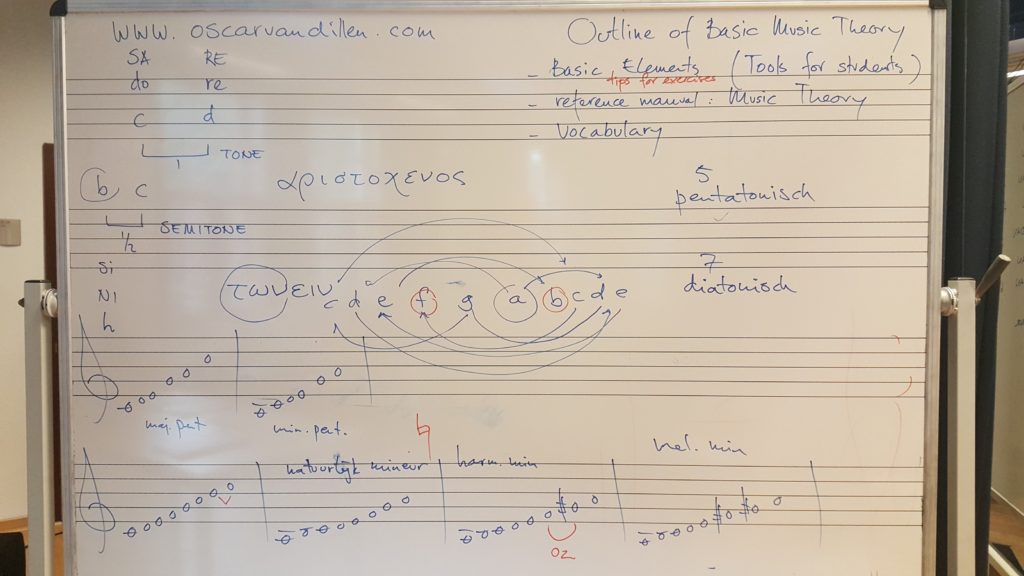 www.oscarvandillen.com
Outline of Basic Music Theory
SA RE
do re
C d
1 TONE
- Basic Elements (Tools for students)
tips for exercises
- reference manual: Music Theory
- Vocabulary
b C
½ SEMITONE
αριστοχενος
5
pentatonisch
Si
NI
h
τωνειν
c d e f g a b c d e
7
diatonisch
maj. pent
min. pent.
natuurlijk mineur
harm. min
mel. min
02